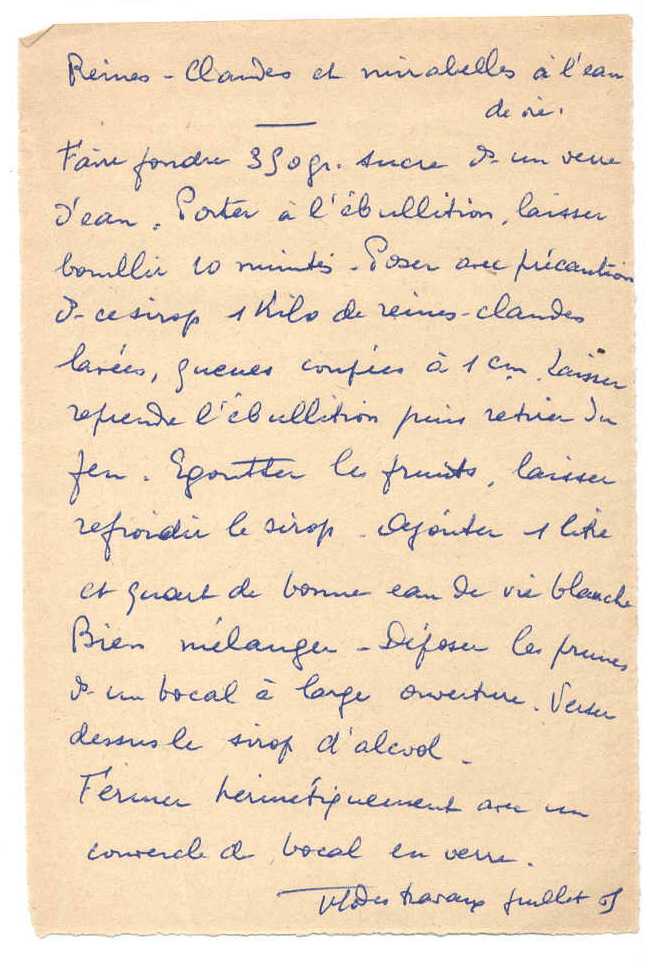 Reines-Claudes et mirabelles à l'eau
de vie.
Faire fondre 350 gr. sucre ds un verre
d'eau. Porter à l'ébullition, laisser
bouillir 10 minutes - Poser avec précaution
ds ce sirop 1 Kilo de reines-claudes
lavées, queues coupées à 1 cm. Laisser
reprendre l'ébullition puis retirer du
feu. Egoutter les fruits, laisser
refroidir le sirop - Ajouter 1 litre
et quart de bonne eau de vie blanche
Bien mélanger - Déposer les prunes
ds un bocal à large ouverture. Verser
dessus le sirop d'alcool -
Fermer hermétiquement avec un
couvercle de bocal en verre.
travaux Juillet